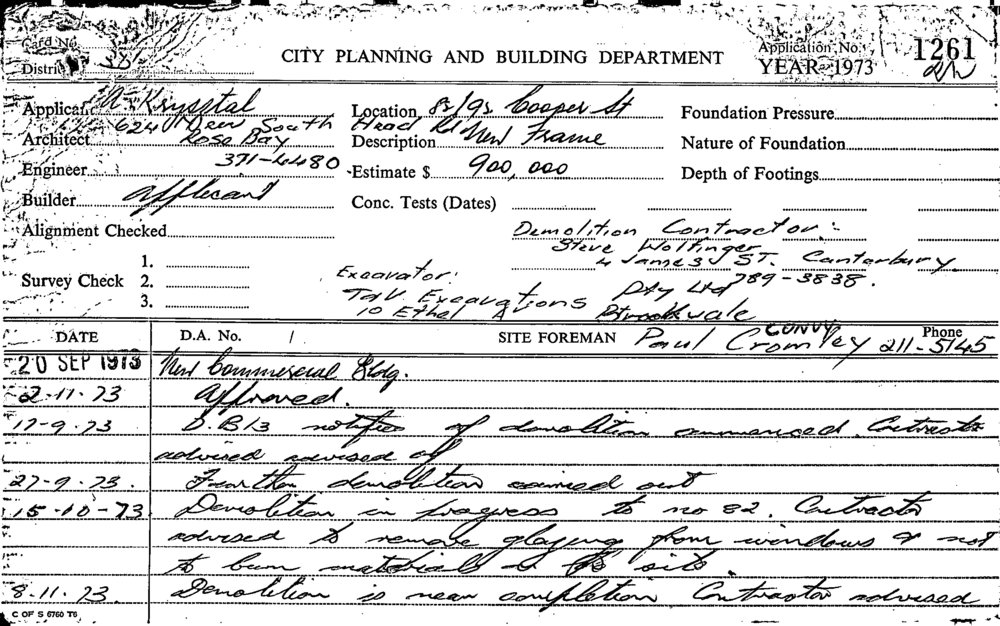 Card No.
CITY PLANNING AND BUILDING DEPARTMENT
Application No. 1261
District
YEAR 1973
Applicant N. Krysztal
Location Cooper St
Foundation Pressure
624 New South Head Rd
Architect Rose Bay
Description New Frame
Nature of Foundation
371-4480
Engineer
Estimate $ 900,000
Depth of Footings
Builder Applicant
Conc. Tests (Dates)
Alignment Checked
Demolition Contractor:-
Steve Wolfinger
4 James ST. Canterbury
789-3838.
Survey Check 1.
2.
3.
Excavator:
Excavations Pty Ltd
10 Ethel Av Brookvale
DATE D.A. No. / SITE FOREMAN Paul Cromley Phone 211-5145
20 SEP 1973 New Commercial Bldg.
2.11.73 Approved.
17-9-73 D.B13 notifies of demolition commenced. Contractor
advised advised of
27-9-73. Further demolition carried out
15-10-73 Demolition in progress to no 82. Contractor
advised to remove glazing from windows & not
to burn materials on site.
8.11.73. Demolition is near completion Contractor advised
C OF S 6760 T6